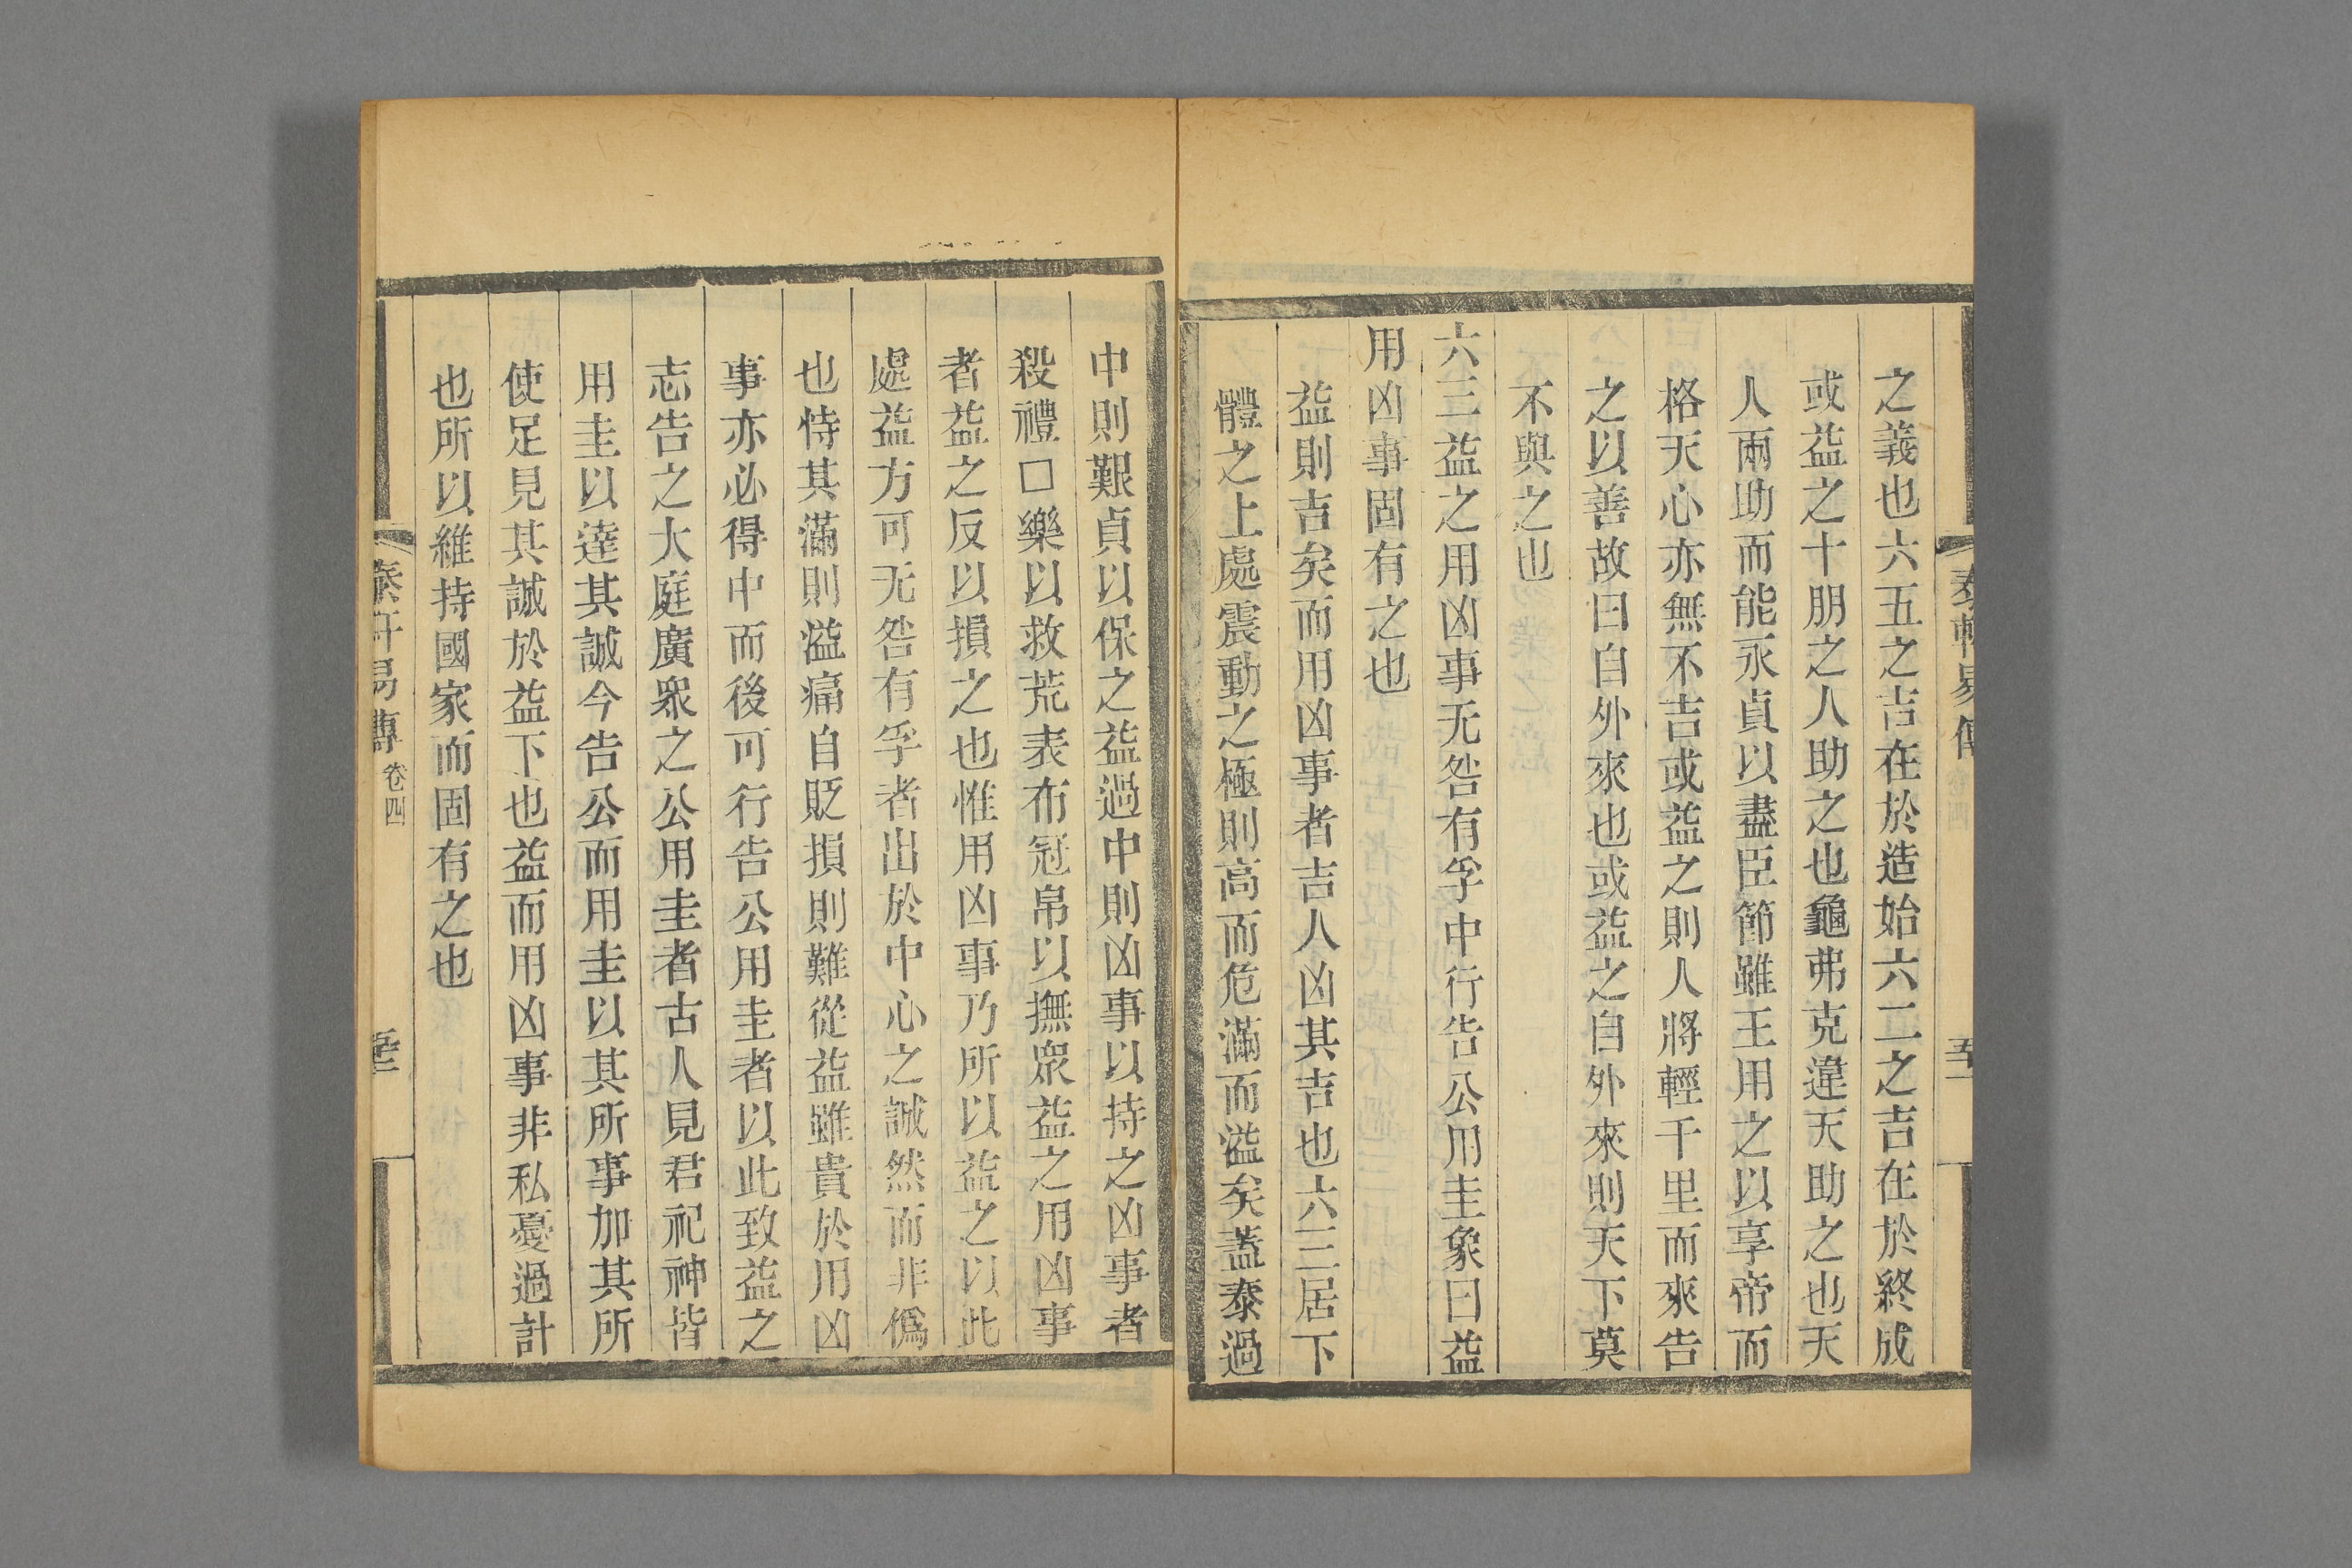 之義也六五之吉在於造始六二之吉在於終成
或益之十朋之人助之也龜弗克違天助之也天
人兩助而能永貞以盡臣節雖王用之以享帝而
格天心亦無不吉或益之則人將輕千里而來告
之以善故曰自外來也或益之自外來則天下莫
不與之也
六三益之用凶事无咎有孚中行告公用圭象曰益
用凶事固有之也
益則吉矣而用凶事者吉人凶其吉也六三居下
體之上處震動之極則高而危滿而溢矣蓋泰過
中則艱貞以保之益過中則凶事以持之凶事者
殺禮□樂以救荒表布冠帛以撫眾益之用凶事
者益之反以損之也惟用凶事乃所以益之以此
處益方可无咎有孚者出於中心之誠然而非僞
也恃其滿則溢痛自貶損則難從益雖貴於用凶
事亦必得中而後可行告公用圭者以此致益之
志告之大庭廣眾之公用圭者古人見君祀神皆
用圭以達其誠今告公而用圭以其所事加其所
使足見其誠於益下也益而用凶事非私憂過計
也所以維持國家而固有之也
易傳 卷四